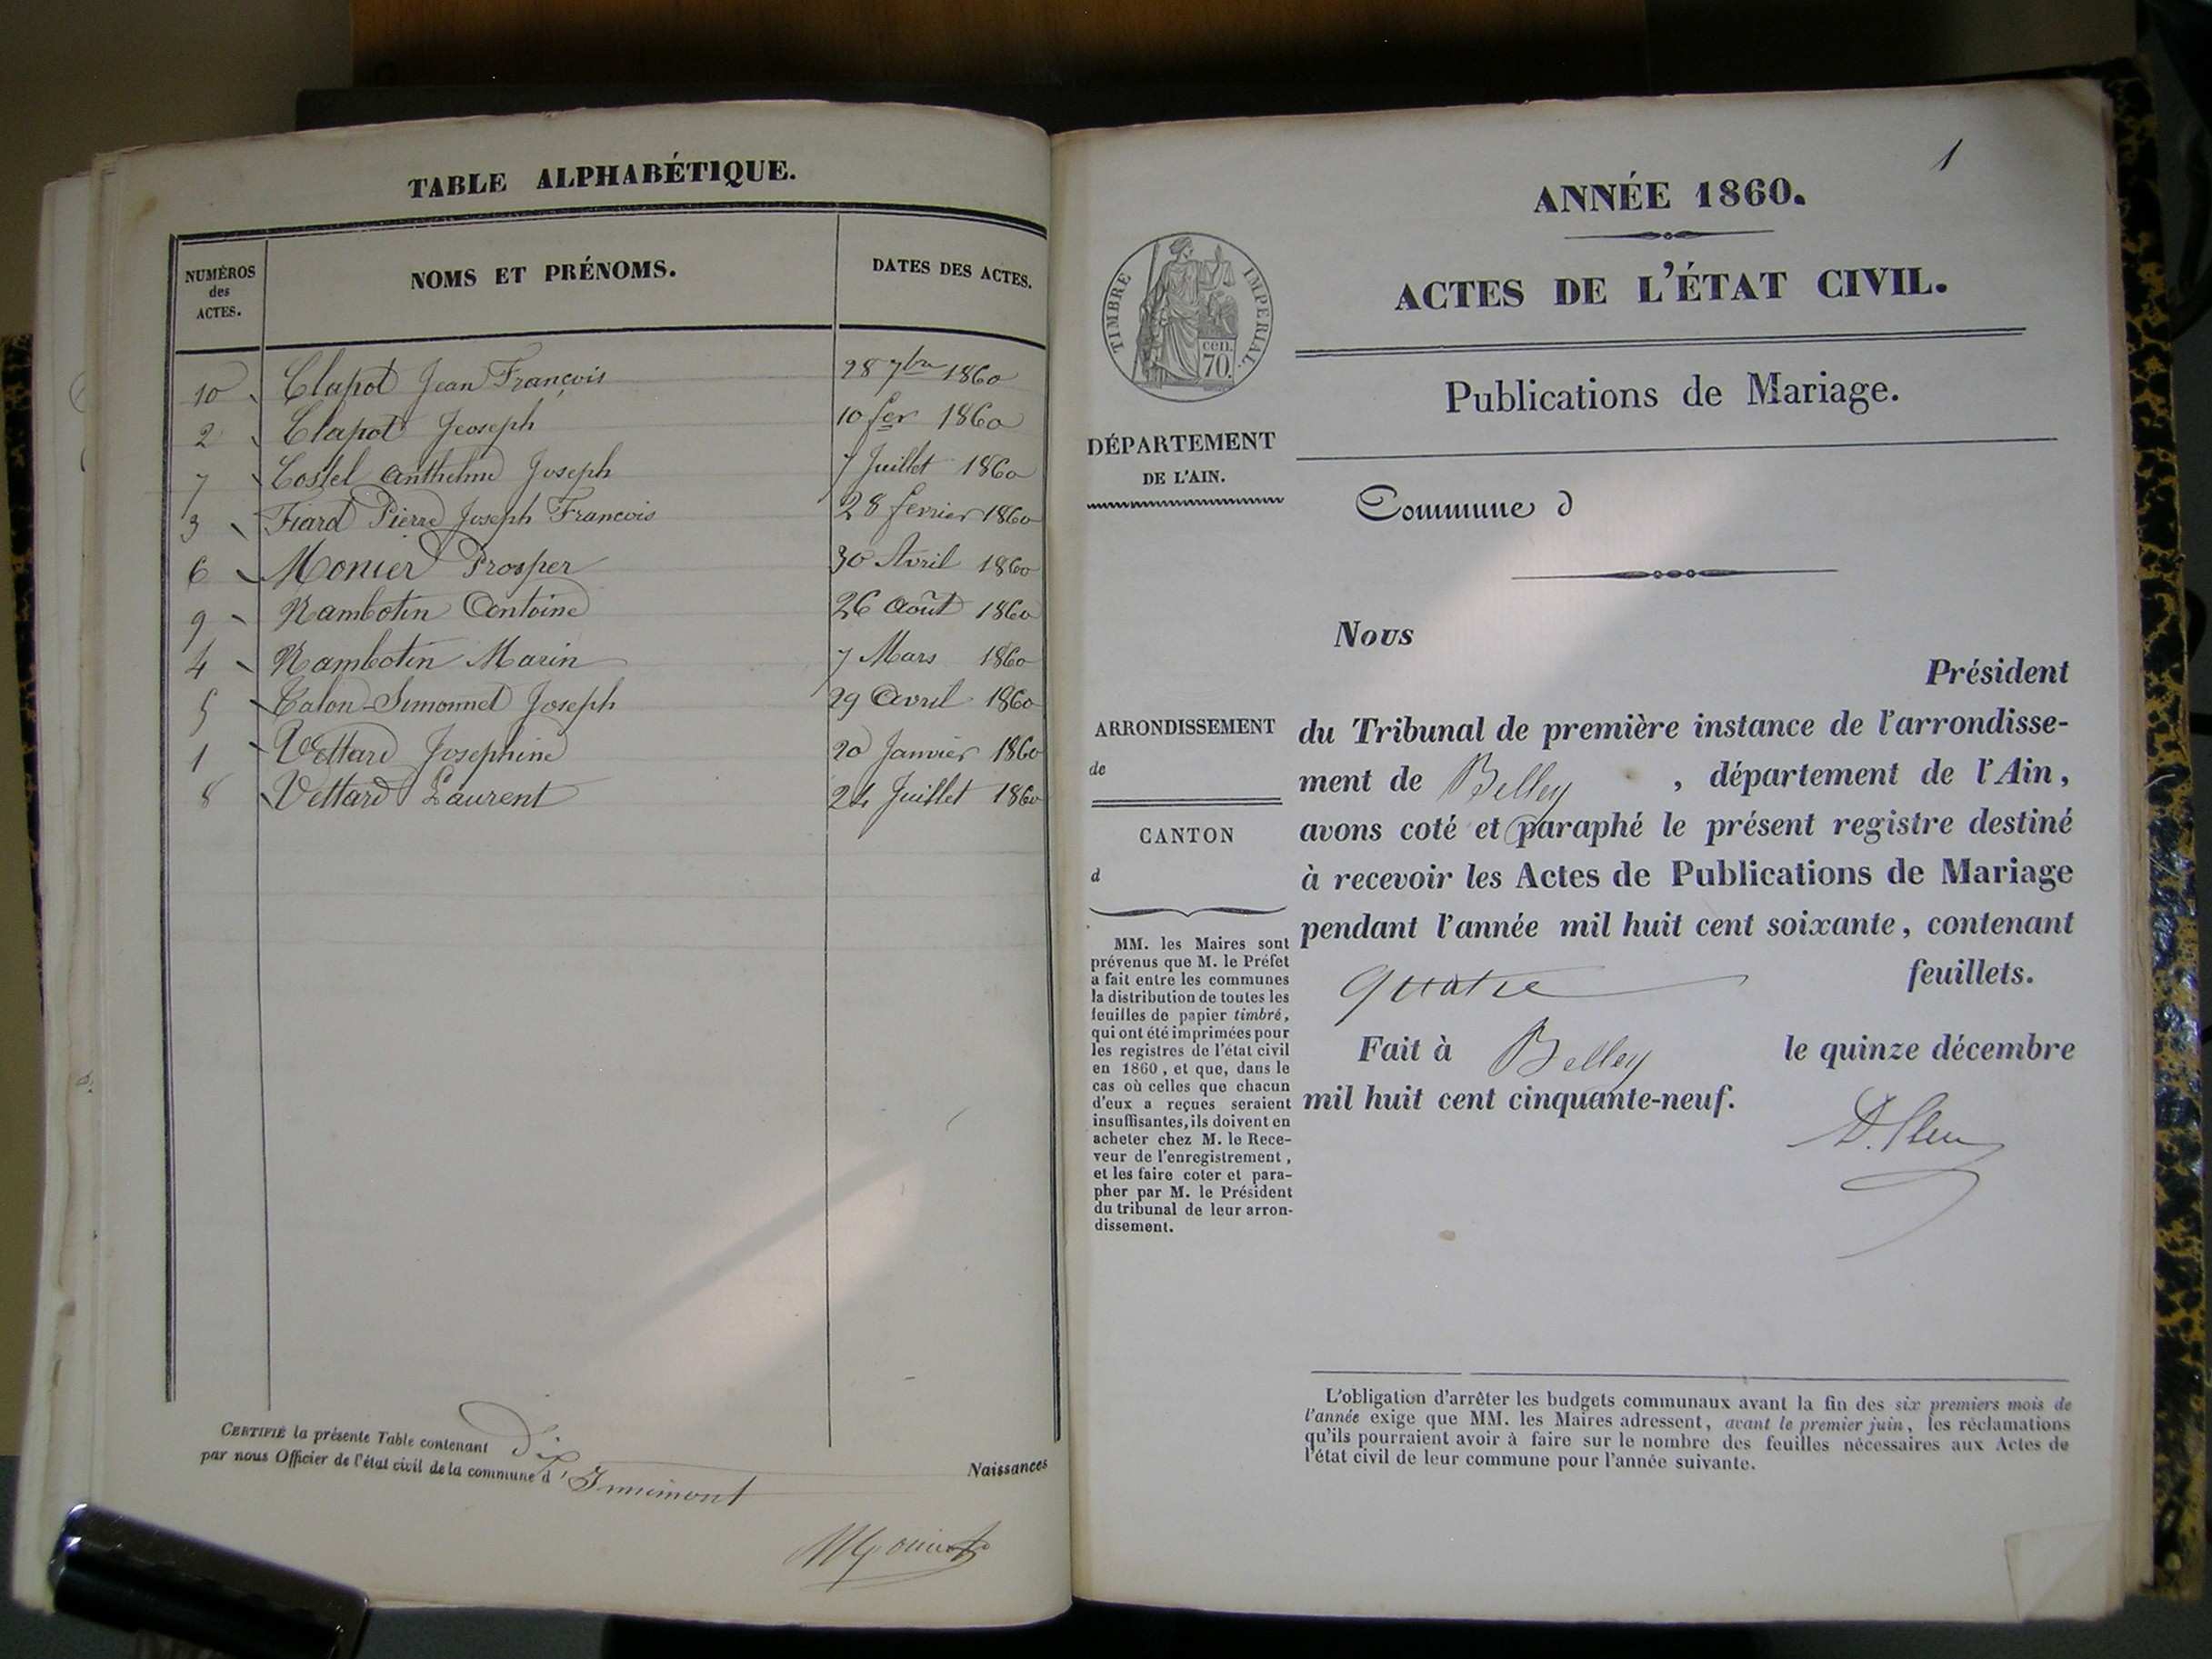 TABLE ALPHABÉTIQUE.
NUMÉROS des ACTES.
NOMS ET PRÉNOMS.
DATES DES ACTES.
10 Clapot Jean François 28 7bre 1860
2 Clapot Jeoseph 10 fer 1860
7 Costel Anthelme Joseph 7 Juillet 1860
3 Fiard Pierre Joseph François 28 fevrier 1860
6 Monier Prosper 30 Avril 1860
9 Rambotin Antoine 26 Août 1860
4 Rambotin Marin 7 Mars 1860
5 Talon-Simonnet Joseph 29 Avril 1860
1 Vettard Josephine 20 Janvier 1860
8 Vettard Laurent 24 Juillet 1860
CERTIFIÉ la présente Table contenant dix Naissances
par nous Officier de l'état civil de la commune d'Innimont
1
ANNÉE 1860.
ACTES DE L'ÉTAT CIVIL.
Publications de Mariage.
TIMBRE IMPERIAL
70 cen.
DÉPARTEMENT
DE L'AIN.
Commune d
ARRONDISSEMENT
de
CANTON
d
MM. les Maires sont
prévenus que M. le Préfet
a fait entre les communes
la distribution de toutes les
feuilles de papier timbré,
qui ont été imprimées pour
les registres de l'état civil
en 1860, et que, dans le
cas où celles que chacun
d'eux a reçues seraient
insuffisantes, ils doivent en
acheter chez M. le Rece-
veur de l'enregistrement,
et les faire coter et para-
pher par M. le Président
du tribunal de leur arron-
dissement.
Nous
Président
du Tribunal de première instance de l'arrondisse-
ment de Belley, département de l'Ain,
avons coté et paraphé le présent registre destiné
à recevoir les Actes de Publications de Mariage
pendant l'année mil huit cent soixante, contenant
quatre feuillets.
Fait à Belley le quinze décembre
mil huit cent cinquante-neuf.
L'obligation d'arrêter les budgets communaux avant la fin des six premiers mois de
l'année exige que MM. les Maires adressent, avant le premier juin, les réclamations
qu'ils pourraient avoir à faire sur le nombre des feuilles nécessaires aux Actes de
l'état civil de leur commune pour l'année suivante.